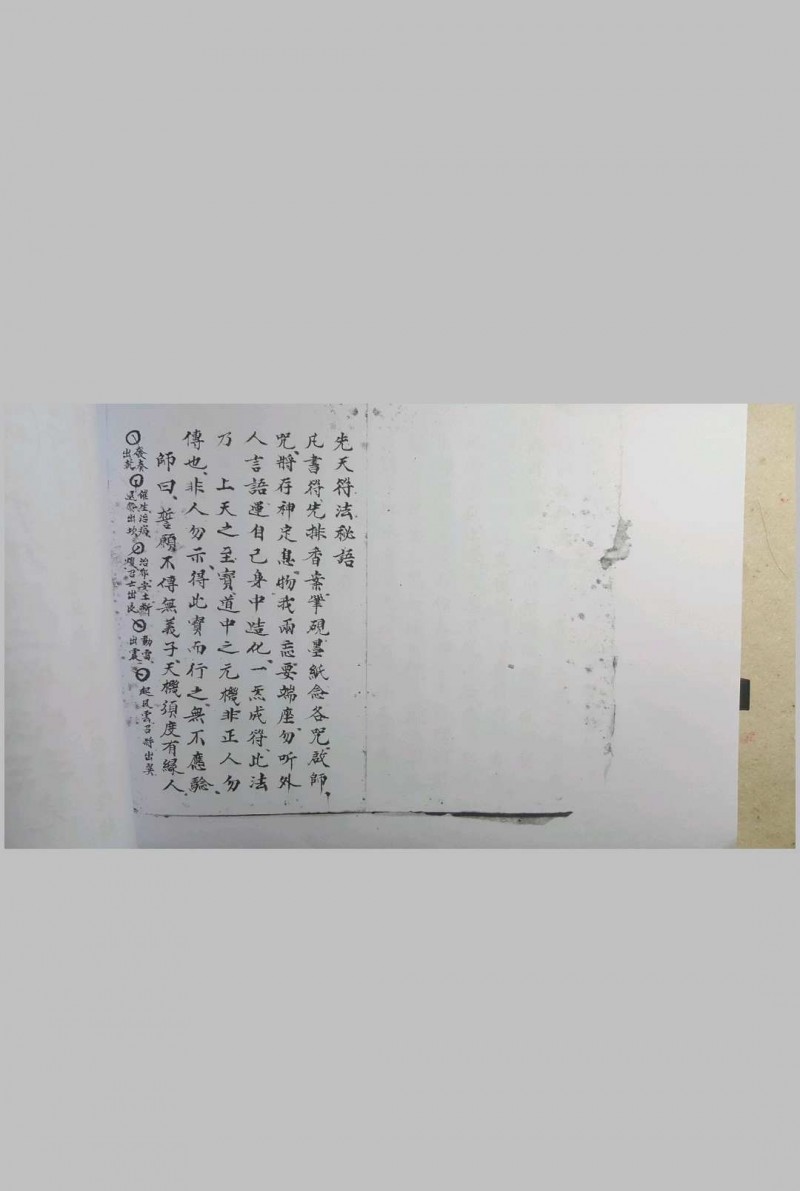 先天符法秘語
凡書符先排香案筆硯墨紙念各咒啟師、
咒、將存神定息、物我兩忘、要端座、勿听外
人言語、運自己身中造化、一炁成符、此法
乃 上天之至寶、道中之元機、非正人勿
傳也、非人勿示、得此寶而行之、無不應驗、
師曰、誓願不傳無義子、天機須度有緣人、
出乾
催生治病
出坎
治邪
動雷
出震
起風雲召將出巽